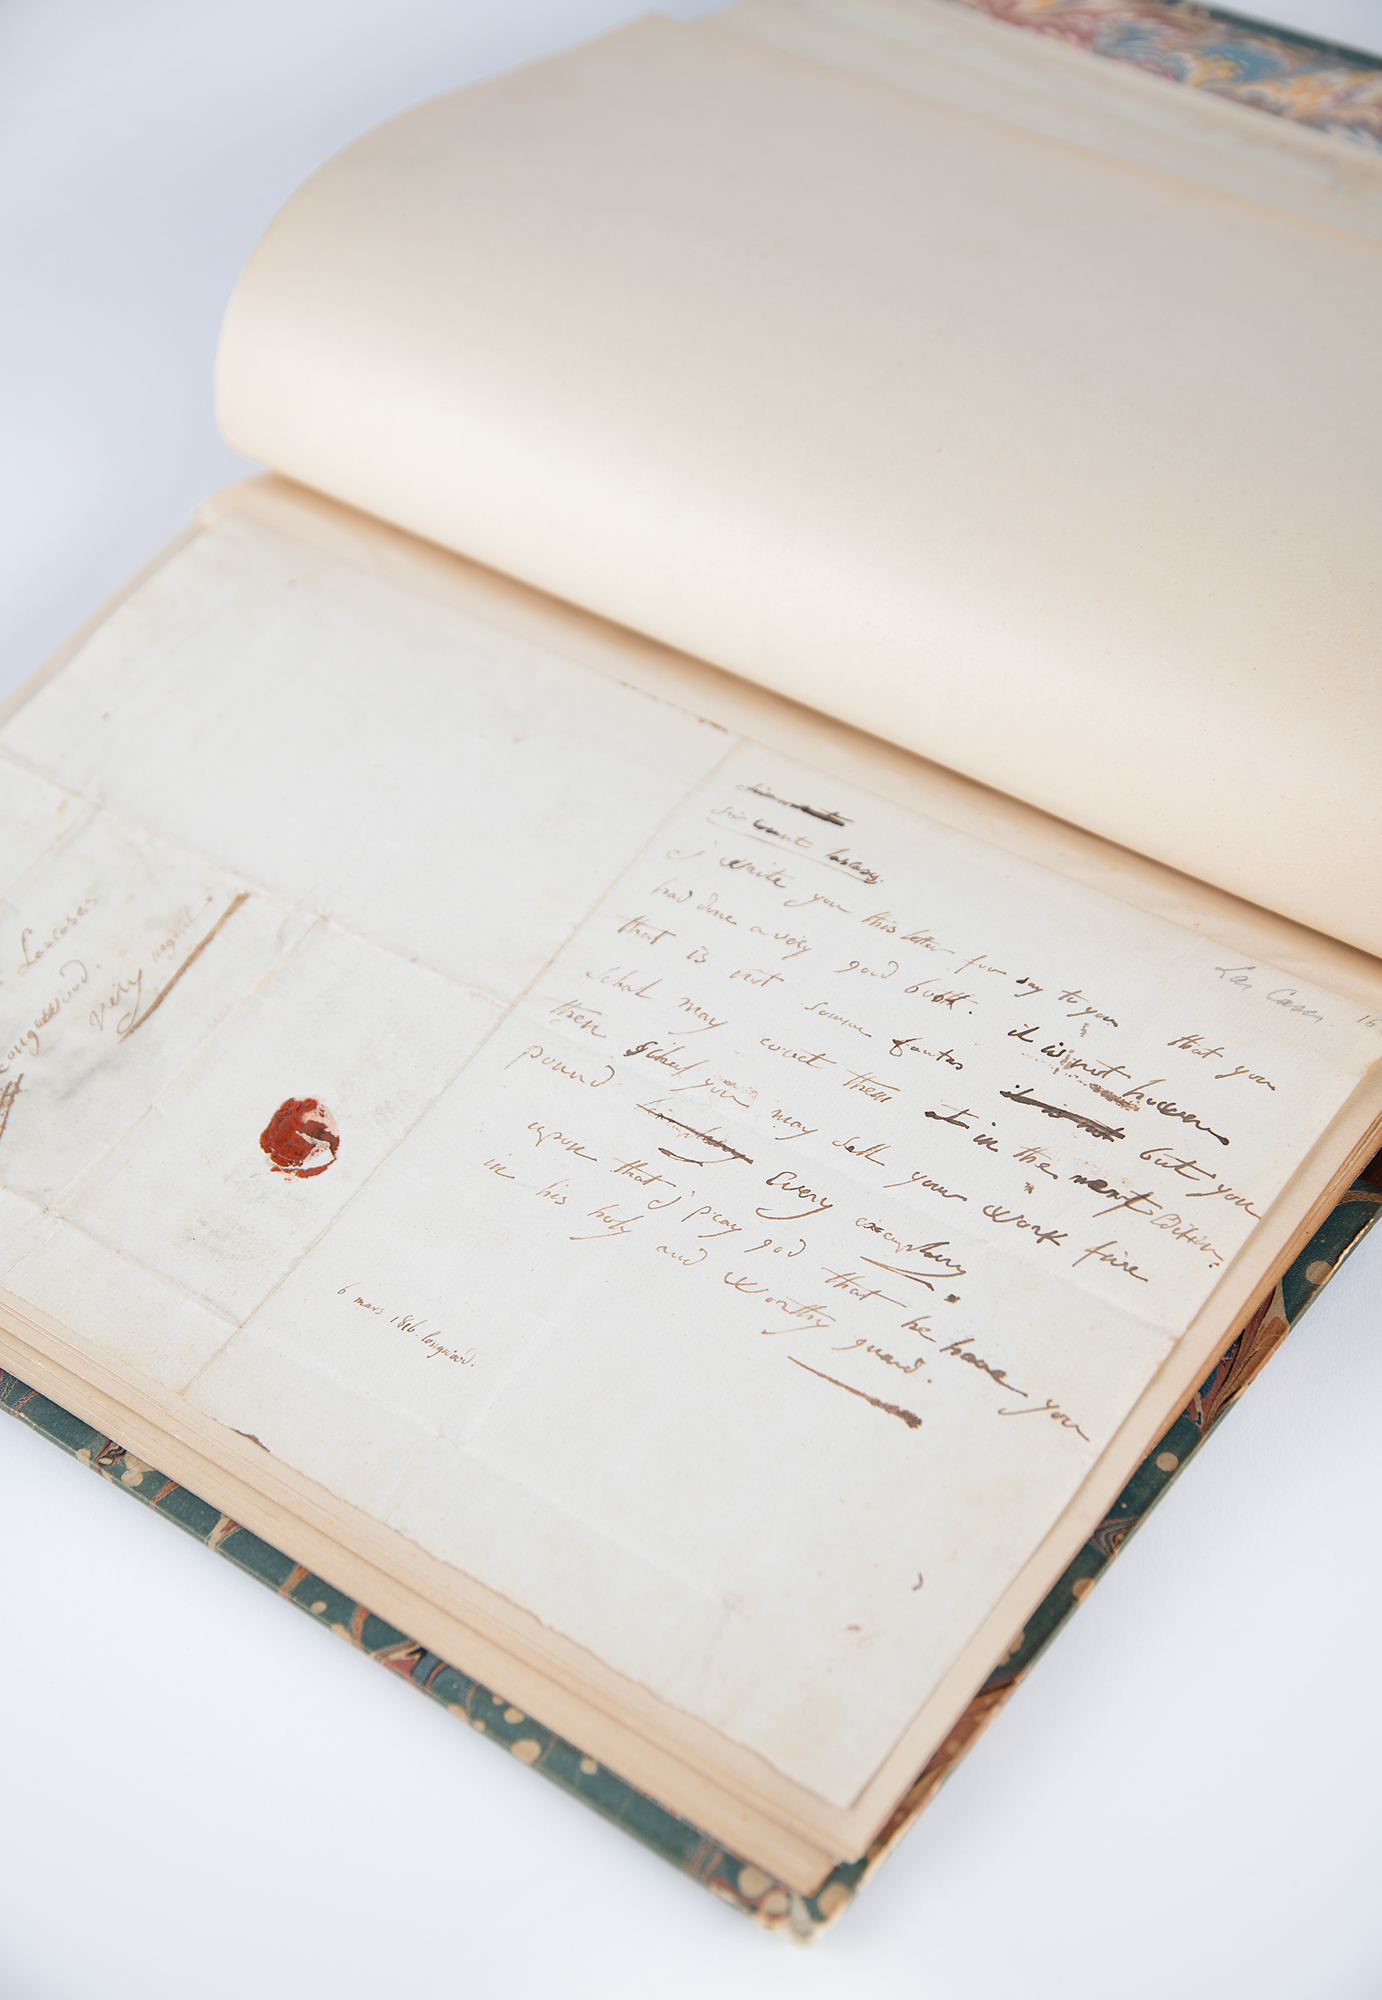 Lascases
Longuwood.
Very urgent.
Las Cases 16
sir count lascases.
J write you this letter for say to you that you
had done a very good bottk. it is not however
that is not somme fautes it is not but you
schal may corect them in the next Edition.
then schal you may sell your work five
pound Every exemplary.
upon that j pray god that he have you
in his holy and worthy guard.
6 mars 1816. longwood.